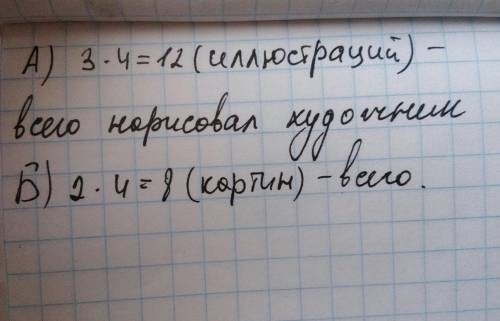 А) 3·4=12 (иллюстраций) –
всего нарисовал художник
Б) 2·4=8 (картин) – всего.